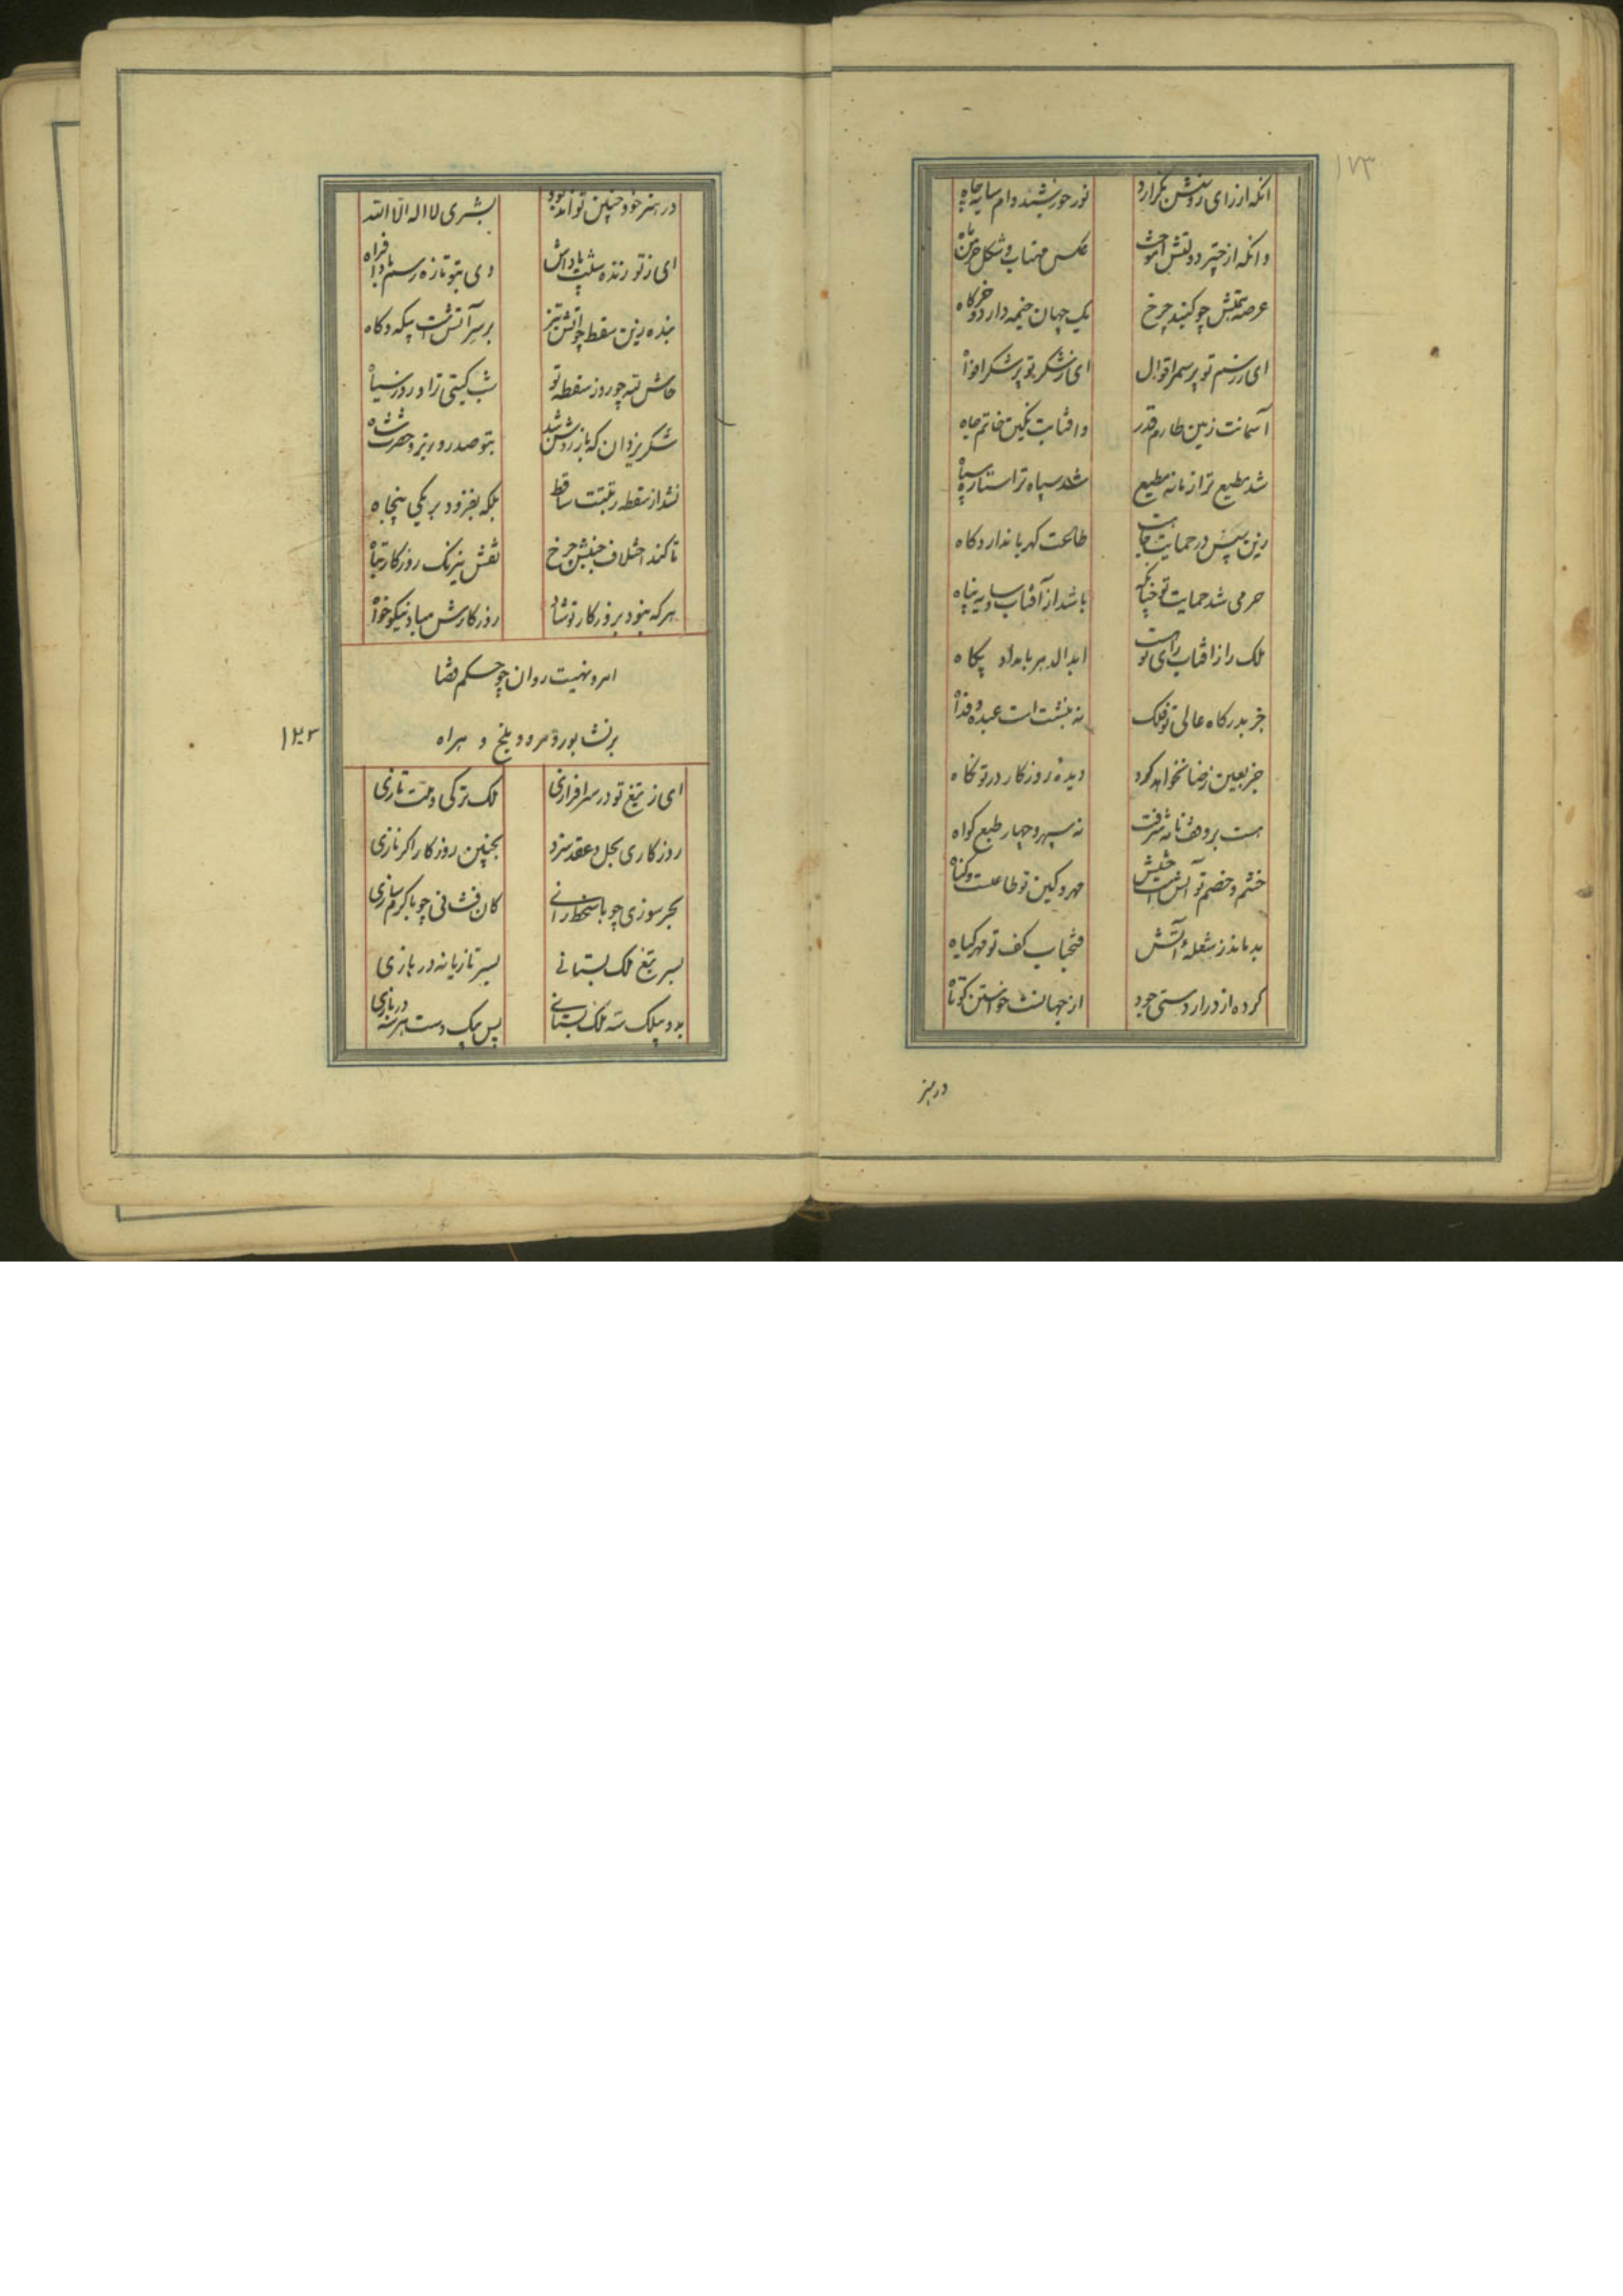 ۱۷۳
آنکه از رای روشنش بگزارد نور خورشید وام سایه چاه
وانکه از چتر دولتش آموخت عکس مهتاب و شکل خرمن ماه
عرصه همتش چو گنبد چرخ یک جهان خیمه دارد و خرگاه
ای ز رسم تو پر سمر اقوال ای ز شکر تو پر شکر افواه
آسمانت زمین طارم قدر وافتابت نگین خاتم جاه
شد مطیع ترا زمانه مطیع شد سپاه ترا ستاره سپاه
زین سپس در حمایت طاعت کهربا ندارد کاه
حرمی شد حمایت تو چنانکه باشد از آفتاب سایه پناه
ملک را ز آفتاب رای تو است ابدالدهر بامداد پگاه
جز بدرگاه عالی تو فلک ننبشت است عبده و فداه
جز بعین رضا نخواهد کرد دیده روزگار در تو نگاه
هست بر وقف نامه شرفت نه سپهر و چهار طبع گواه
خشم و خصم تو آتش است و حشیش مهر و کین تو طاعت و گناه
بدماند ز شعله آتش فتحباب کف تو مهر گیاه
کرده از دراز دستی جود از جهان دست خواستن کوتاه
در هنر
در هنر خود چنین تواند بود بشری لا اله الا الله
ای ز تو زنده سنت پاداش وی بتو تازه رسم باد افراه
بنده زین سقطه چو آتش تیز بر سر آتش است بیگه و گاه
حاش لله چو روز سقطه تو شب گیتی نزاد روز سیاه
شکر یزدان که باز روشن شد بتو صدر وزیر و حضرت شاه
نشد از سقطه رتبتت ساقط بلکه بفزود بر یکی پنجاه
تا کند اختلاف جنبش چرخ نقش نیرنگ روزگار تباه
هرکه نبود بروزگار تو شاد روزگارش مباد نیکوخواه
امر و نهیت روان چو حکم قضا
بر نشابور و مرو و بلخ و هراه
۱۲۳
ای ز تیغ تو در سرافرازی ملک ترکی و ملت تازی
روزگاری بحل و عقد سزد بچنین روزگار اگر نازی
بحر سوزی چو با سخط رانی کان فشانی چو با کرم سازی
بسر تیغ ملک بستانی بسر تازیانه در بازی
بدو پیلک سه ملک بستانی پس بیک دست هر سه در بازی